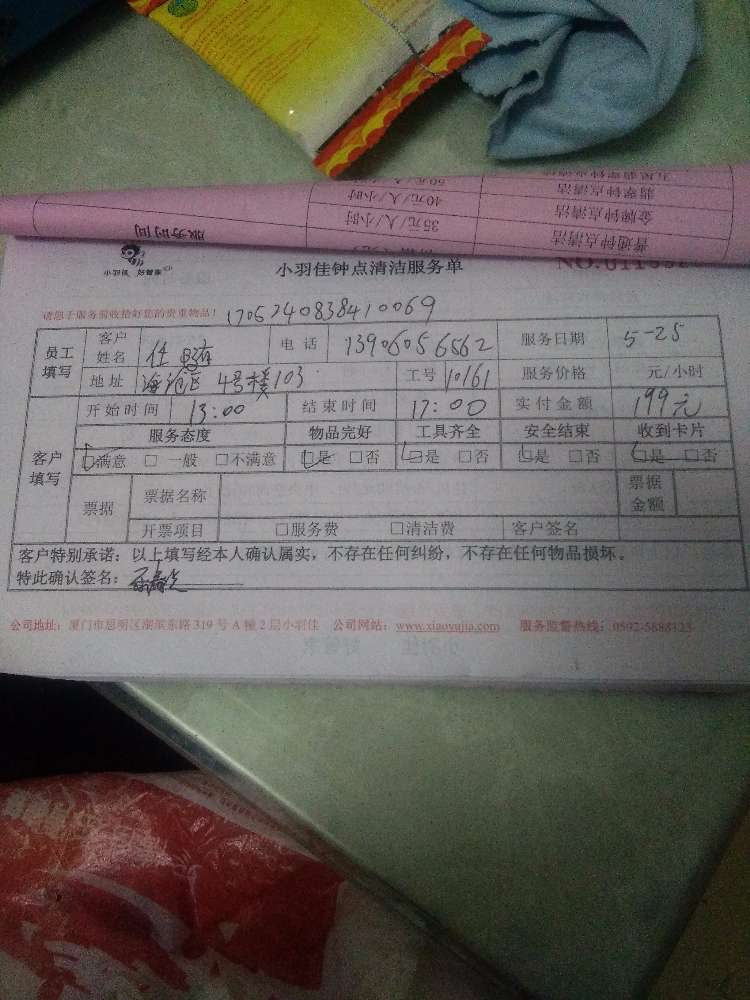 服务时间
50元/人/小时
40元/人/小时 翡翠钟点清洁
35元/人/小时 金牌钟点清洁
普通钟点清洁
小羽佳 好管家
小羽佳钟点清洁服务单 NO.
请您于服务前收拾好您的贵重物品! 170524083841 0069
员工填写 客户姓名 任 电话 13906056562 服务日期 5-25
地址 海沧区 4号楼103 工号 10161 服务价格 元/小时
客户填写 开始时间 13:00 结束时间 17:00 实付金额 199元
服务态度 物品完好 工具齐全 安全结束 收到卡片
☑满意 □一般 □不满意 ☑是 □否 ☑是 □否 ☑是 □否 ☑是 □否
票据 票据名称 票据金额
开票项目 □服务费 □清洁费 客户签名
客户特别承诺:以上填写经本人确认属实,不存在任何纠纷,不存在任何物品损坏。
特此确认签名:
公司地址:厦门市思明区湖滨东路319号A幢2层小羽佳 公司网站:www.xiaoyujia.com 服务监督热线:0592-5888123